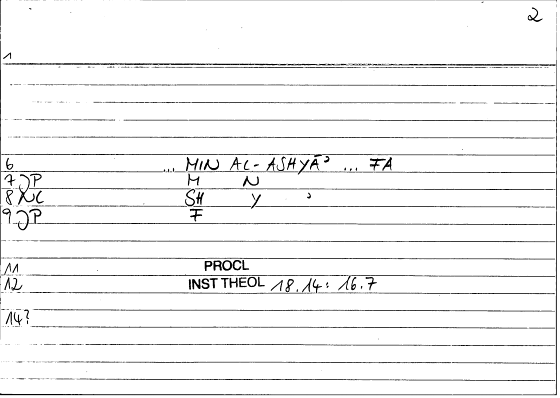 2
1
6 ... MIN AL-ASHYĀʾ ... FA
7 JP M N
8 NC SH Y ʾ
9 JP F
11 PROCL
12 INST THEOL 18.14: 16.7
14?